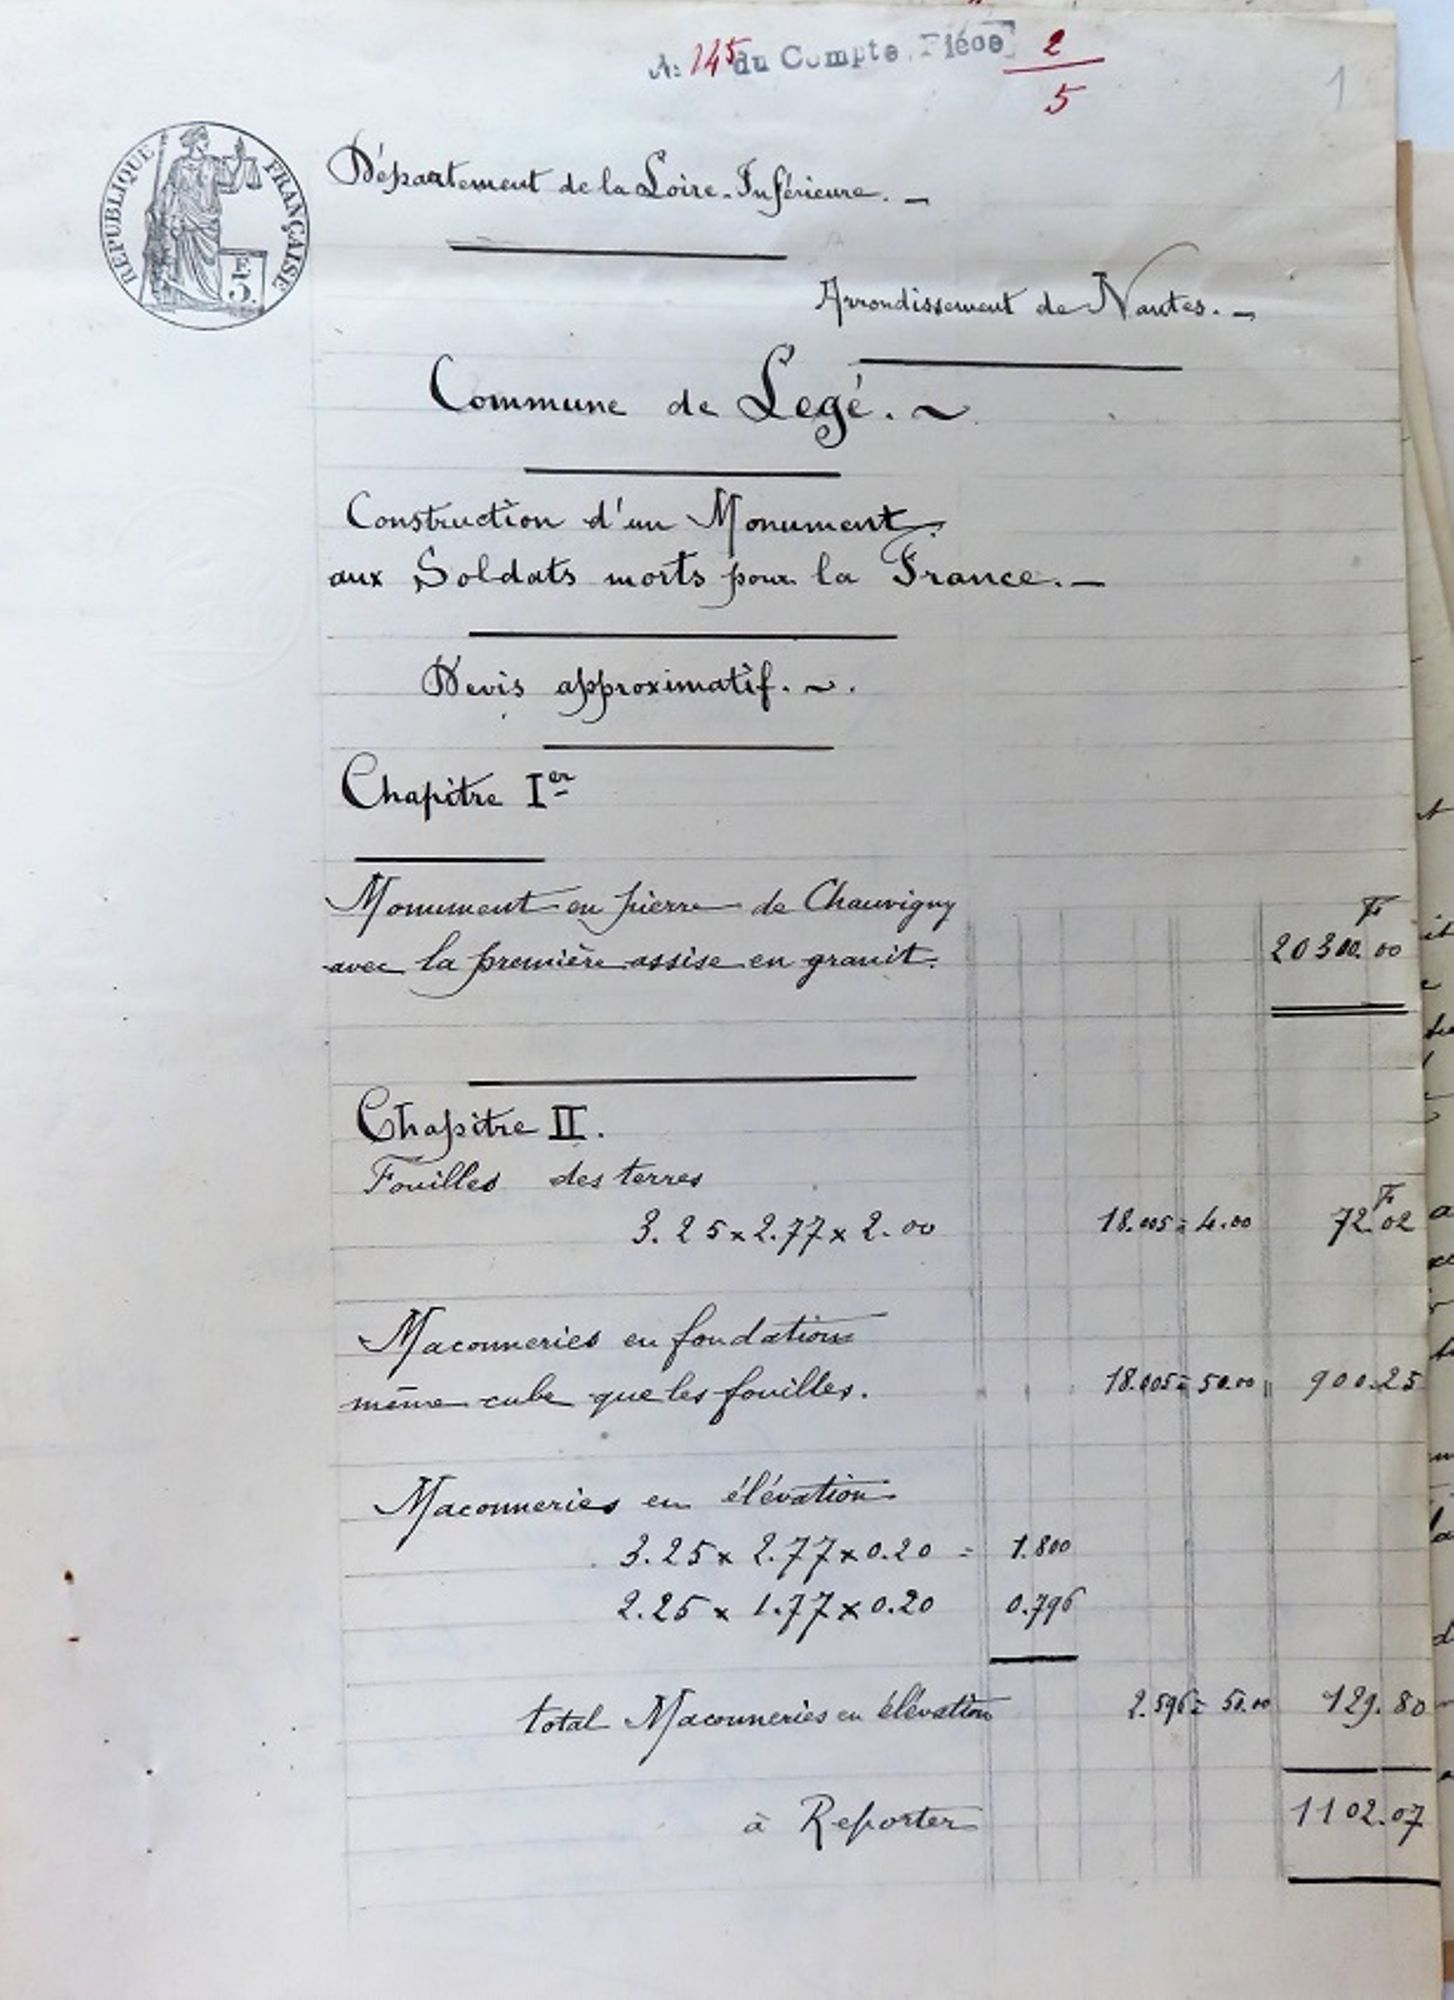 A: 145 du Compte, Pièce 2/5
1
RÉPUBLIQUE FRANÇAISE
F. 3.
Département de la Loire-Inférieure. —
Arrondissement de Nantes. —
Commune de Legé. ~
Construction d'un Monument
aux Soldats morts pour la France. —
Devis approximatif. ~.
Chapitre Ier
Monument en pierre de Chauvigny
avec la première assise en granit. F 20300.00
Chapitre II.
Fouilles des terres
3.25 x 2.77 x 2.00 18.005 à 4.00 F 72.02
Maconneries en fondations
même cube que les fouilles. 18.005 à 50.00 900.25
Maconneries en élévation
3.25 x 2.77 x 0.20 = 1.800
2.25 x 1.77 x 0.20 0.796
total Maconneries en élévation 2.596 à 50.00 129.80
à Reporter 1102.07